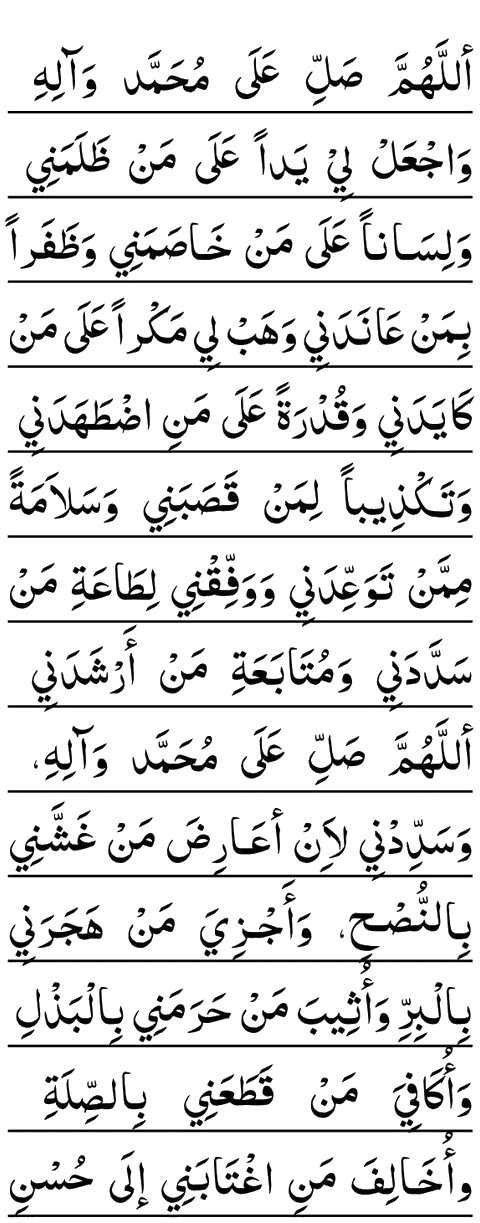 أللَّهُمَّ صَلِّ عَلَى مُحَمَّد وَآلِهِ
وَاجْعَلْ لِيْ يَداً عَلَى مَنْ ظَلَمَنِي
وَلِسَاناً عَلَى مَنْ خَاصَمَنِي وَظَفَراً
بِمَنْ عَانَدَنِي وَهَبْ لِي مَكْراً عَلَى مَنْ
كَايَدَنِي وَقُدْرَةً عَلَى مَنِ اضْطَهَدَنِي
وَتَكْذِيباً لِمَنْ قَصَبَنِي وَسَلاَمَةً
مِمَّنْ تَوَعِّدَنِي وَوَفِّقْنِي لِطَاعَةِ مَنْ
سَدَّدَنِي وَمُتَابَعَةِ مَنْ أَرْشَدَنِي
أللَّهُمَّ صَلِّ عَلَى مُحَمَّد وَآلِهِ،
وَسَدِّدْنِي لاَِنْ أعَارِضَ مَنْ غَشَّنِي
بِالنُّصْحِ، وَأَجْزِيَ مَنْ هَجَرَنِي
بِالْبِرِّ وَأُثِيبَ مَنْ حَرَمَنِي بِالْبَذْلِ
وَأُكَافِيَ مَنْ قَطَعَنِي بِالصِّلَةِ
وأُخَالِفَ مَنِ اغْتَابَنِي إلَى حُسْنِ